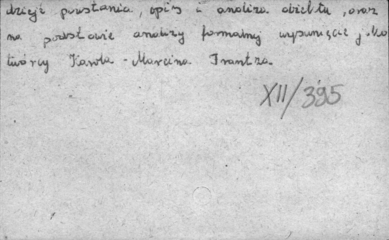 dzieje powstania, opis i analiza obiektu, oraz
na podstawie analizy formalnej wysunięcie
twórcy Karola - Marcina Frantza.
XII/395